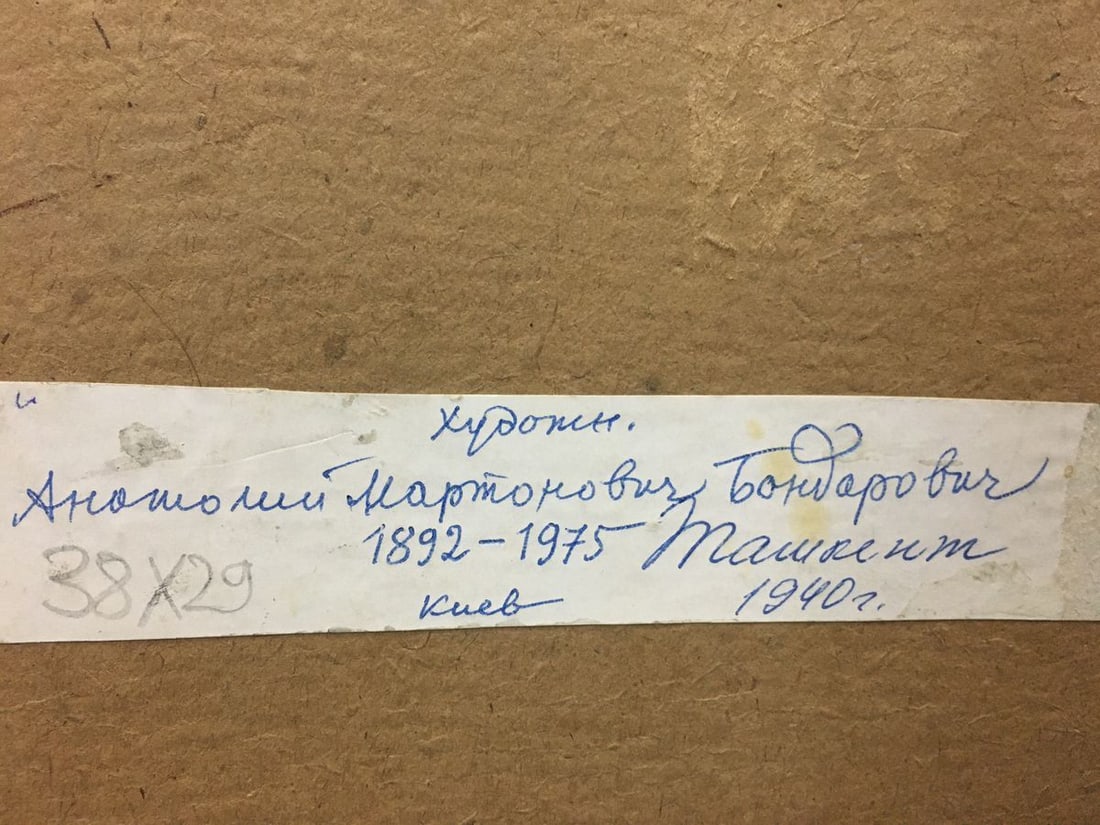 Художн.
Анатолий Мартонович Бондарович
1892-1975 Ташкент
38х29 Киев 1940г.